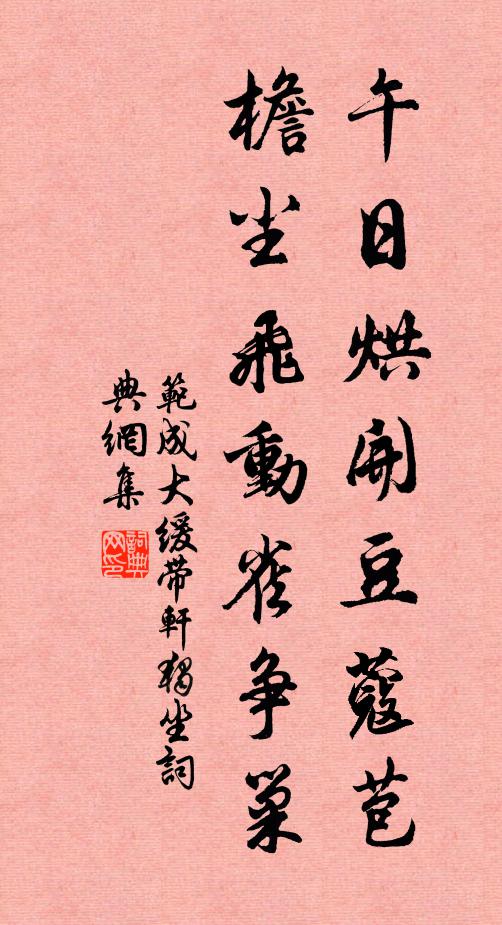 午日烘開豆蔻苞
檐尘飛動雀争巢
範成大緩帶軒獨坐詞
典網集
詞典
网印